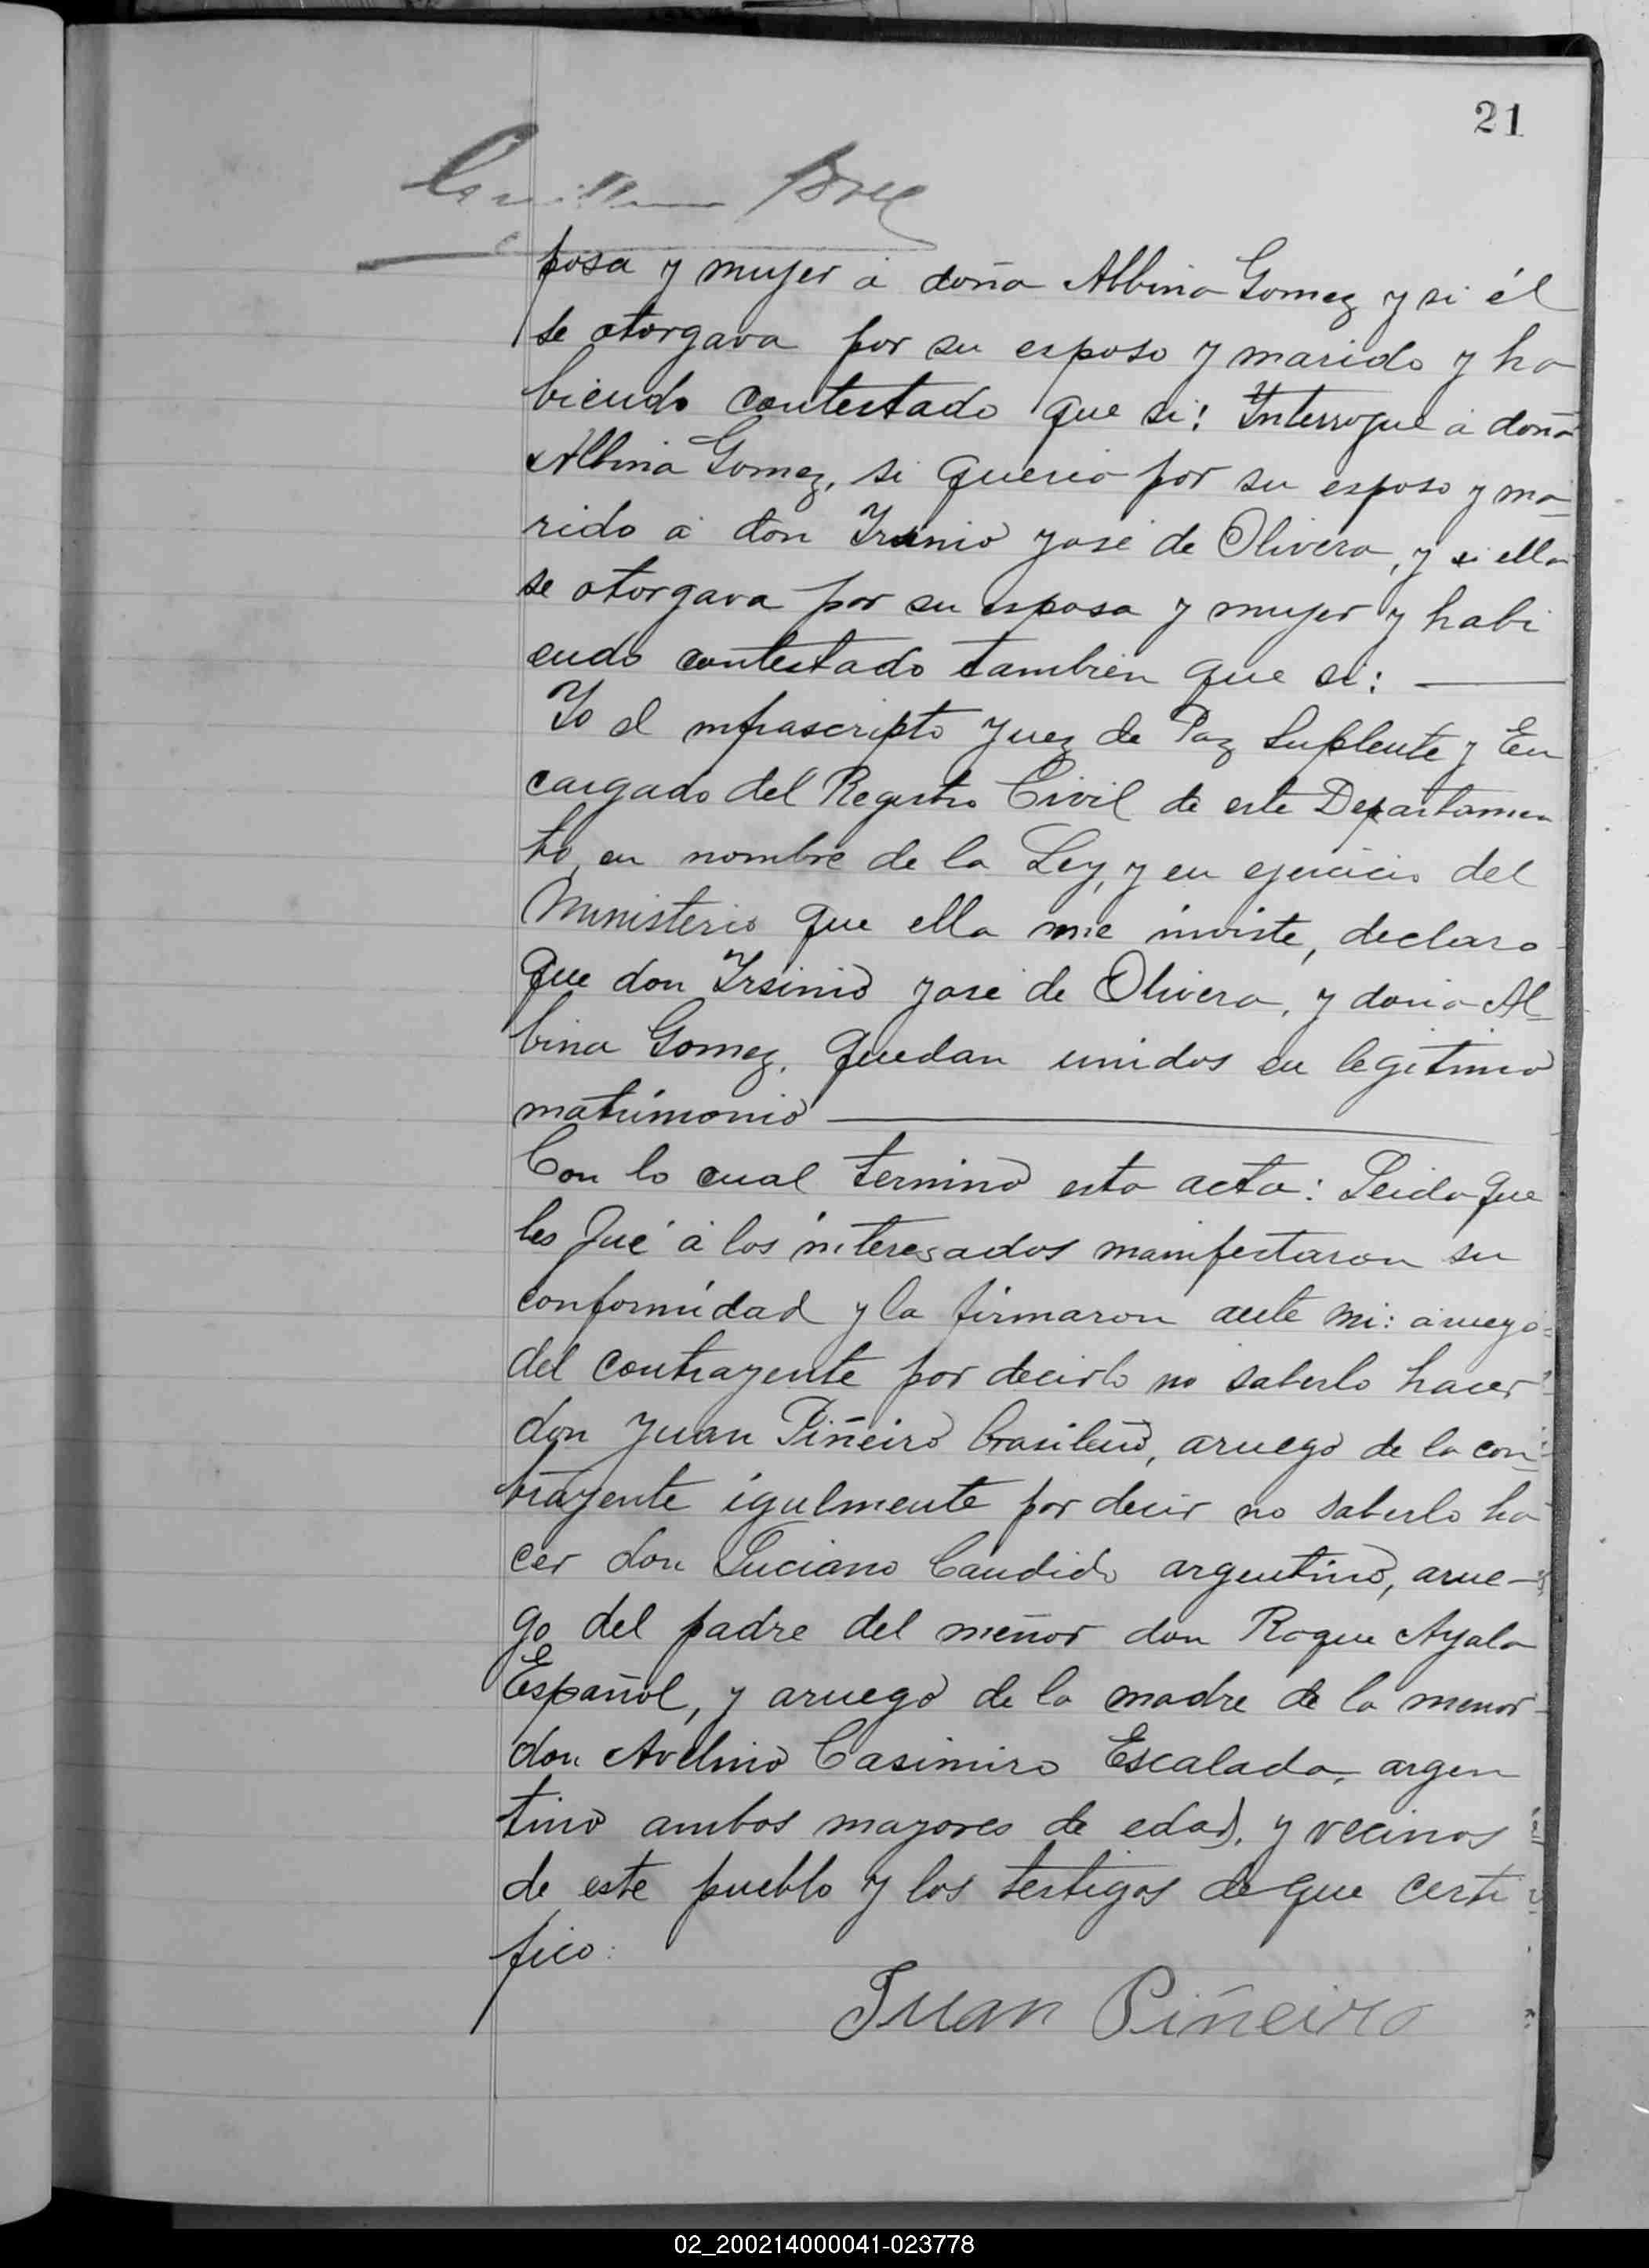 21
posa y mujer á doña Albina Gomez y si él
se otorgava por su esposo y marido y ha
biendo contestado que si: Interrogué á doña
Albina Gomez, si queria por su esposo y ma-
rido á don Irsinio José de Olivera, y si ella
se otorgava por su esposa y mujer y habi
endo contestado tambien que si:
Yo el infrascripto Juez de Paz Suplente y En
cargado del Registro Civil de este Departamen
to, en nombre de la Ley, y en ejercicio del
Ministerio que ella me inviste, declaro
que don Irsinio José de Olivera, y doña Al-
bina Gomez, quedan unidos en legitimo
matrimonio
Con lo cual terminó esta acta: Leida que
les fué á los interesados manifestaron su
conformidad y la firmaron ante mi: á ruego
del contrayente por decirlo no saberlo hacer
don Juan Piñeiro brasileño, aruego de la con-
trayente igulmente por decir no saberlo ha
cer don Luciano Candido argentino, arue-
go del padre del menor don Roque Ayala
Español, y aruego de la madre de la menor
don Avelino Casimiro Escalada, argen
tino ambos mayores de edad, y vecinos
de este pueblo y los testigos de que certi
fico:
Juan Piñeiro
02_200214000041-023778